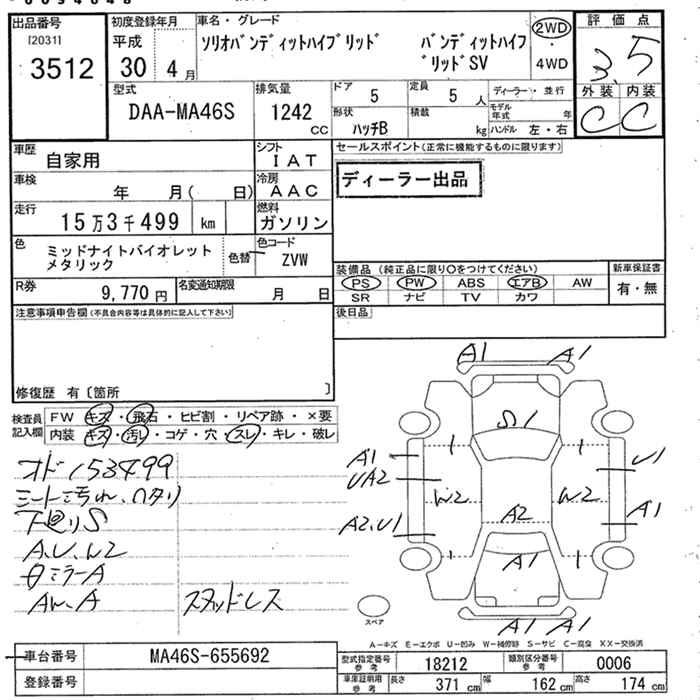 出品番号
[2031]
3512
初度登録年月
平成
30 4月
車名・グレード
ソリオバンディットハイブリッド バンディットハイブ
リッドSV
2WD
・
4WD
評価点
3.5
外装 内装
C C
型式
DAA-MA46S
排気量
1242
CC
ドア 5
定員 5 人
ディーラー・並行
形状 ハッチB
積載 kg
モデル年式 年
ハンドル 左・右
車歴
自家用
シフト
IAT
車検
年 月( 日)
冷房
AAC
走行
15万3千499 km
燃料
ガソリン
色
ミッドナイトバイオレット
メタリック
色替
色コード
ZVW
R券
9,770 円
名変通知期限
月 日
セールスポイント(正常に機能するものに限ります)
ディーラー出品
装備品 (純正品に限り○をつけてください)
PS PW ABS エアB AW
SR ナビ TV カワ
新車保証書
有・無
後日品
注意事項申告欄(不具合内容等は具体的に記入して下さい)
修復歴 有〔箇所 〕
検査員
記入欄
FW キズ・飛石・ヒビ割・リペア跡・×要
内装 キズ・汚レ・コゲ・穴・スレ・キレ・破レ
オド153499
シート汚れ、ヘタリ
下廻りS
A、U、W2
ミラーA
AW、A スタッドレス
A1 A1
S1
A1
UA2
U1
W2 W2
A2
A2、U1
A1
A1
A1 A1
スペア
A-キズ E-エクボ U-凹み W-補修跡 S-サビ C-腐食 XX-交換済
車台番号
MA46S-655692
登録番号
型式指定番号
参考
18212
類別区分番号
参考
0006
車庫証明用
参考
長さ 371 cm
幅 162 cm
高さ 174 cm